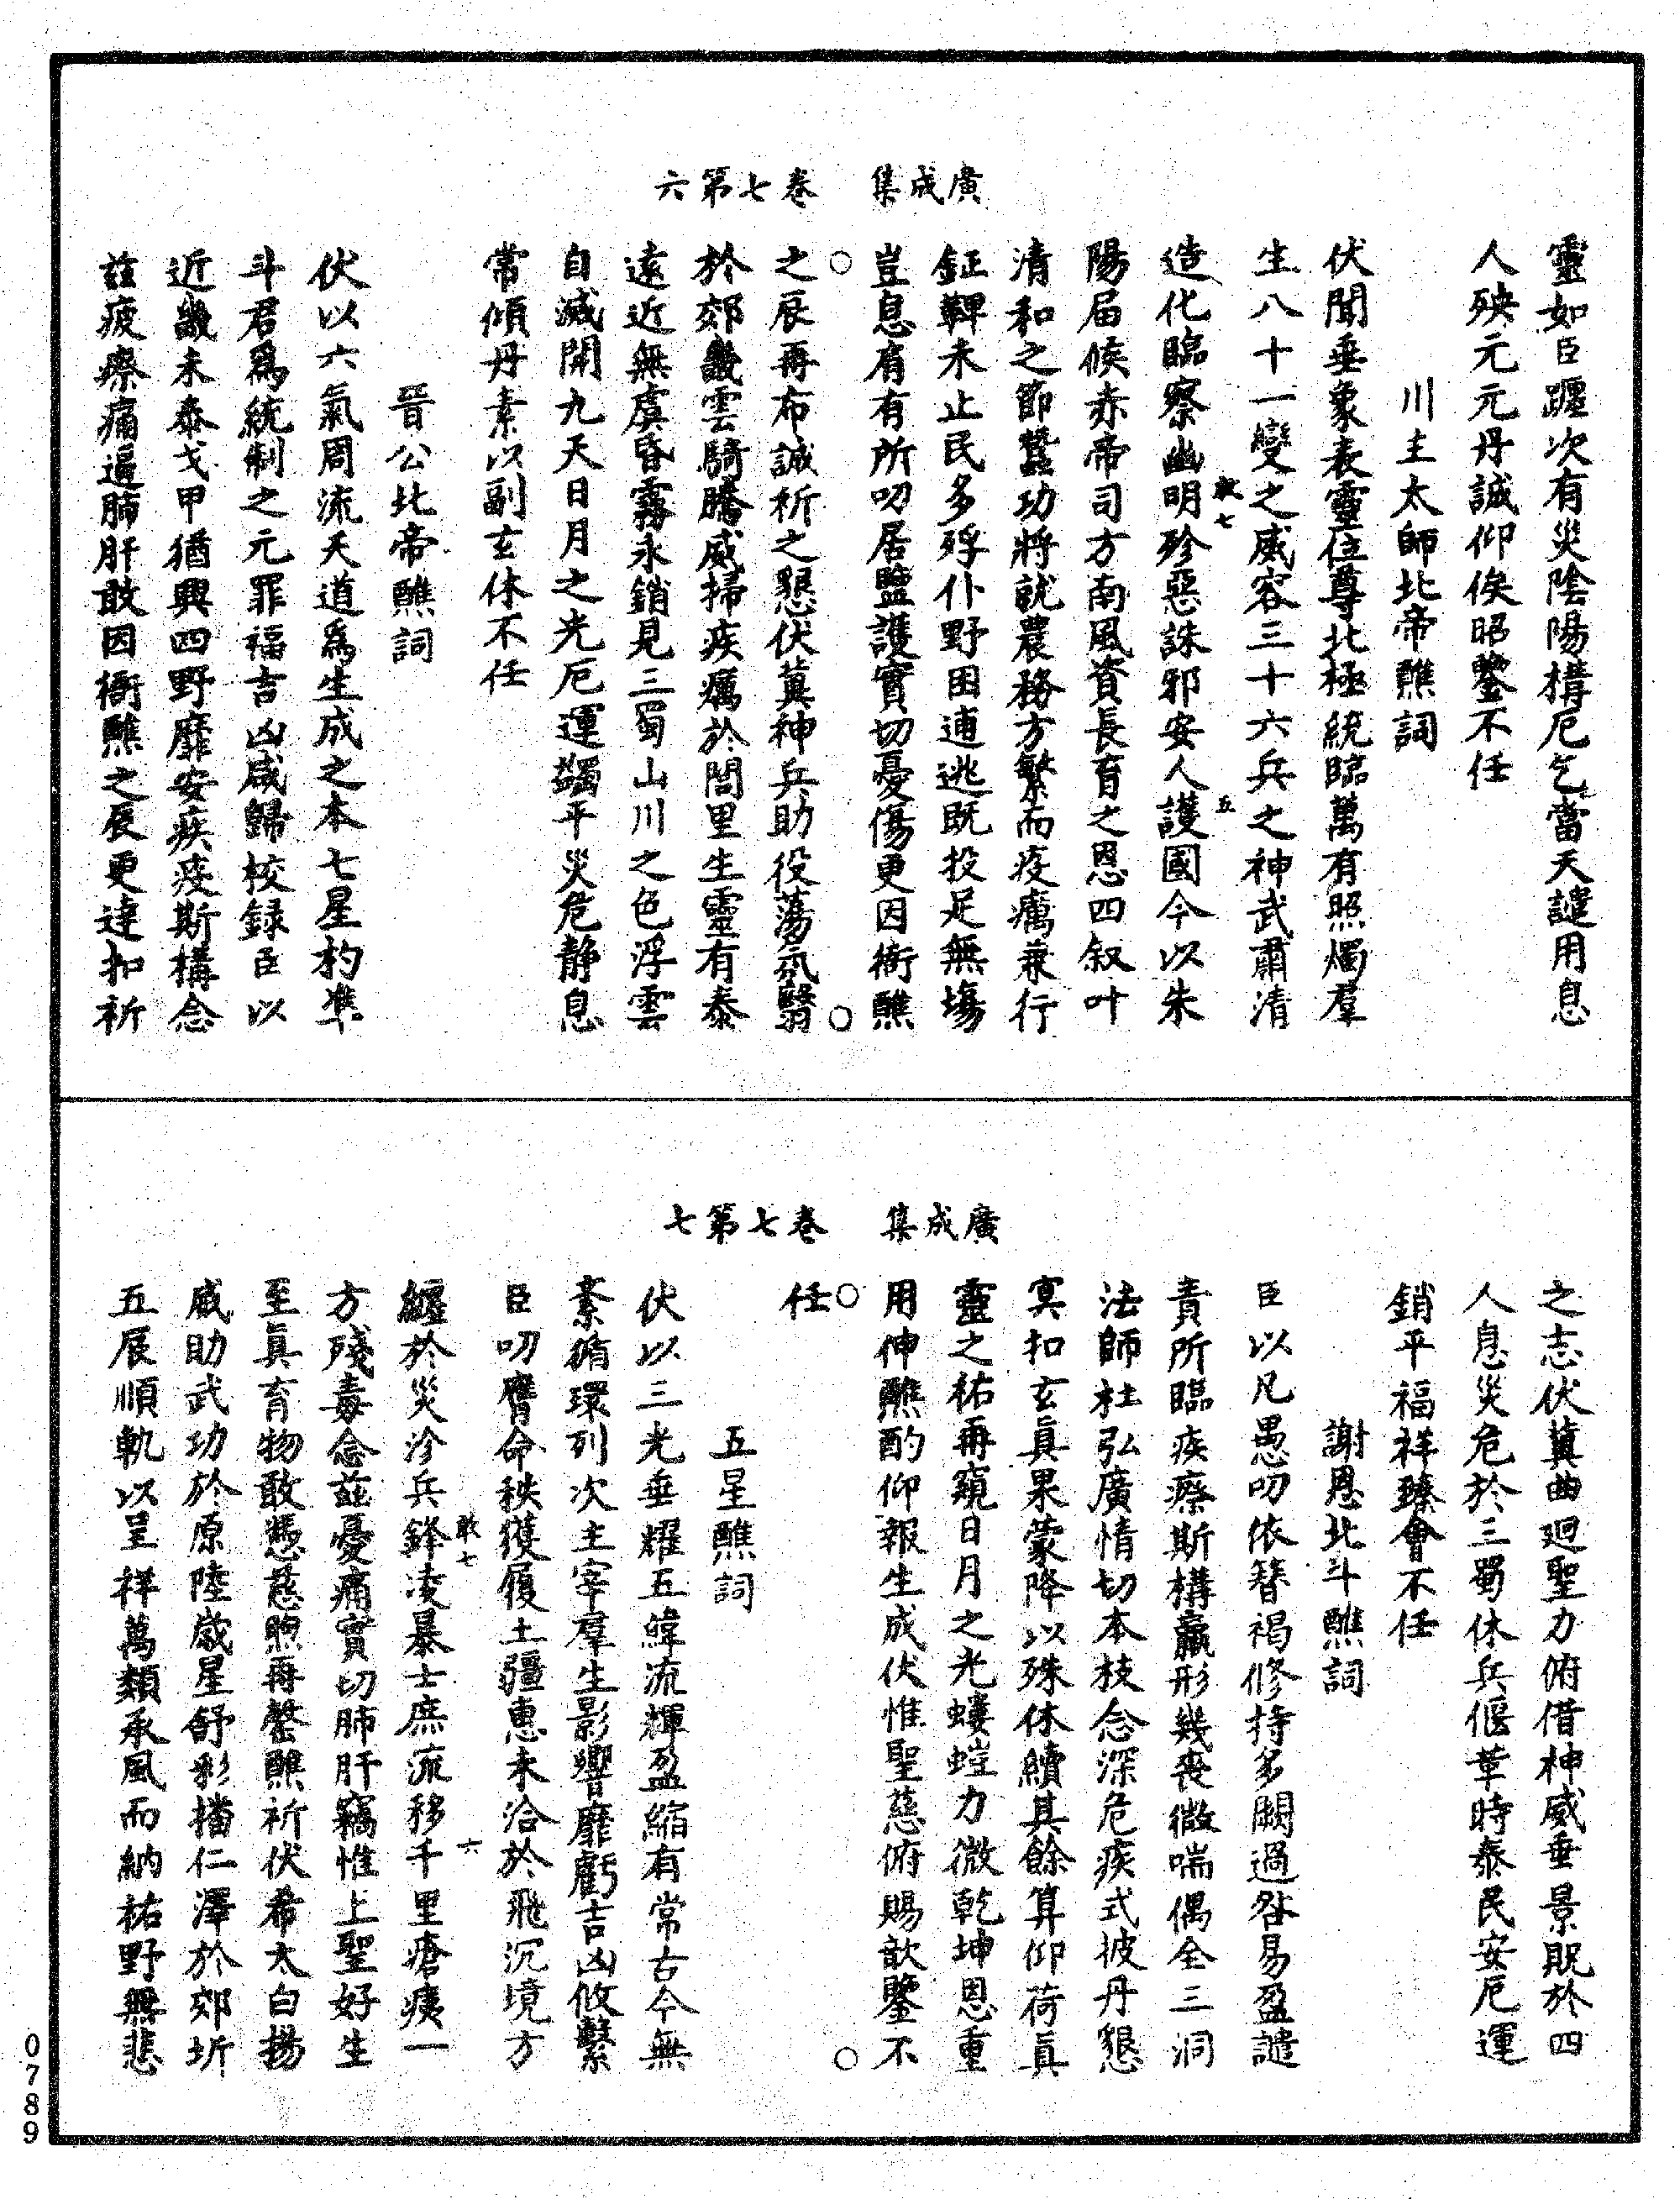 廣成集　卷七第六
靈如臣躔次有災陰陽構厄乞當天譴用息
人殃元元丹誠仰俟昭鑒不任
川主太師北帝醮詞
伏聞垂象表靈位尊北極統臨萬有照燭羣
生八十一變之威容三十六兵之神武肅清
敢七　五
造化臨察幽明殄惡誅邪安人護國今以朱
陽届候赤帝司方南風資長育之恩四叙叶
清和之節蠶功將就農務方繁而疫癘兼行
鉦鞞未止民多殍仆野困逋逃既投足無塲
豈息肩有所叨居監護實切憂傷更因衙醮
之辰再布誠祈之懇伏冀神兵助役蕩氛翳
於郊畿雲騎騰威掃疾癘於閭里生靈有泰
遠近無虞昏霧永銷見三蜀山川之色浮雲
自滅開九天日月之光厄運蠲平災危静息
常傾丹素以副玄休不任
晉公北帝醮詞
伏以六氣周流天道爲生成之本七星杓準
斗君爲統制之元罪福吉凶咸歸校録臣以
近畿未泰戈甲猶興四野靡安疾疫斯構念
兹疲瘵痛逼肺肝敢因衙醮之辰更達扣祈
廣成集　卷七第七
之志伏冀曲迴聖力俯借神威垂景貺於四
人息災危於三蜀休兵偃革時泰民安厄運
銷平福祥臻會不任
謝恩北斗醮詞
臣以凡愚叨依簪褐修持多闕過咎易盈譴
責所臨疾瘵斯構羸形幾喪微喘偶全三洞
法師杜弘廣情切本枝念深危疾式披丹懇
冥扣玄眞果蒙降以殊休續其餘算仰荷眞
靈之祐再窺日月之光螻螘力微乾坤恩重
用伸醮酌仰報生成伏惟聖慈俯賜歆鑒不
任
五星醮詞
伏以三光垂耀五緯流輝盈縮有常古今無
紊循環列次主宰羣生影響靡虧吉凶攸繫
臣叨膺命秩獲履土疆惠未洽於飛沉境方
敢七　六
纏於災沴兵鋒凌暴士庶流移千里瘡痍一
方殘毒念兹憂痛實切肺肝竊惟上聖好生
至眞育物敢慿慈煦再罄醮祈伏希太白揚
威助武功於原陸歲星舒彩播仁澤於郊圻
五辰順軌以呈祥萬類承風而納祐野無悲
0789